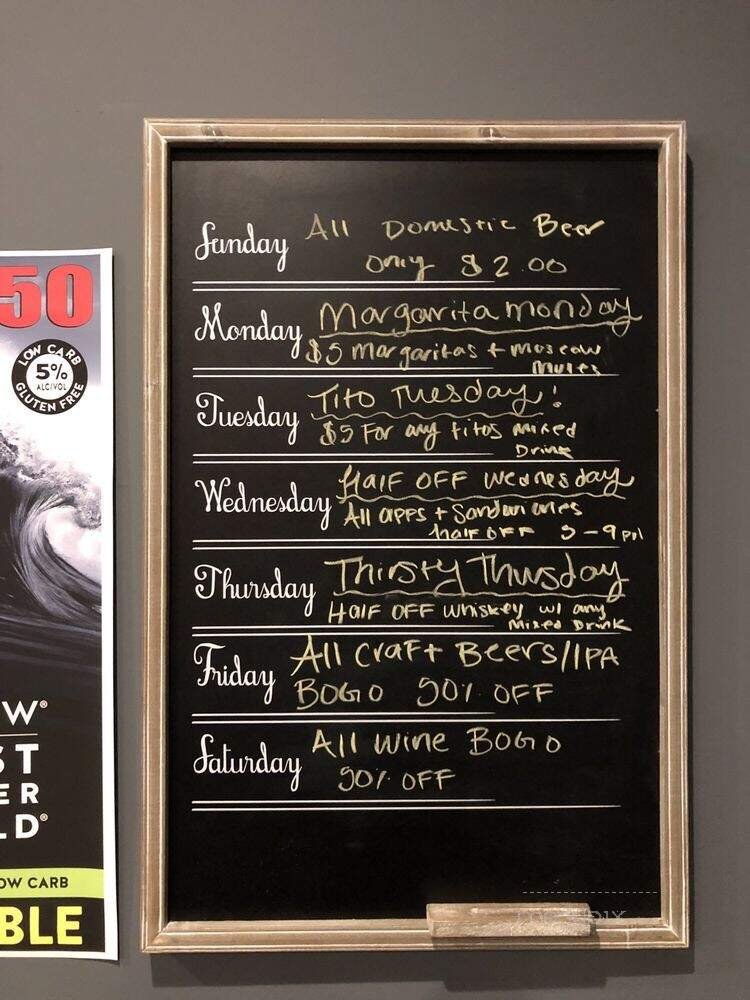 50
LOW CARB
5%
ALC/VOL
GLUTEN FREE
W®
ST
ER
LD®
OW CARB
BLE
Sunday All Domestic Beer
only $2.00
Monday Margarita monday
$5 margaritas + moscow
mules
Tuesday Tito Tuesday!
$5 For any titos mixed
Drink
Wednesday HALF OFF Wednesday
All apps + Sandwiches
half OFF 5-9 pm
Thursday Thirsty Thursday
HalF OFF whiskey w/ any
Mixed Drink
Friday All CraFt Beers/IPA
BOGO 50% OFF
Saturday All Wine BOGO
50% OFF